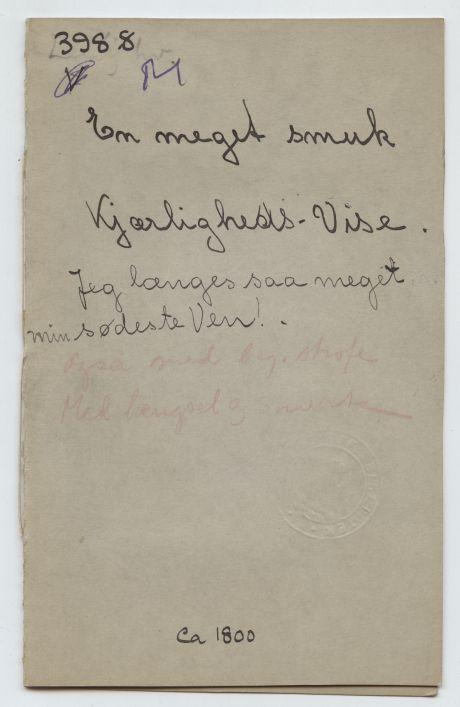 3988
M
En meget smuk
Kjærligheds-Vise.
Jeg længes saa meget
min sødeste Ven!.
også med beg. strofe
Med længsel og
Ca 1800